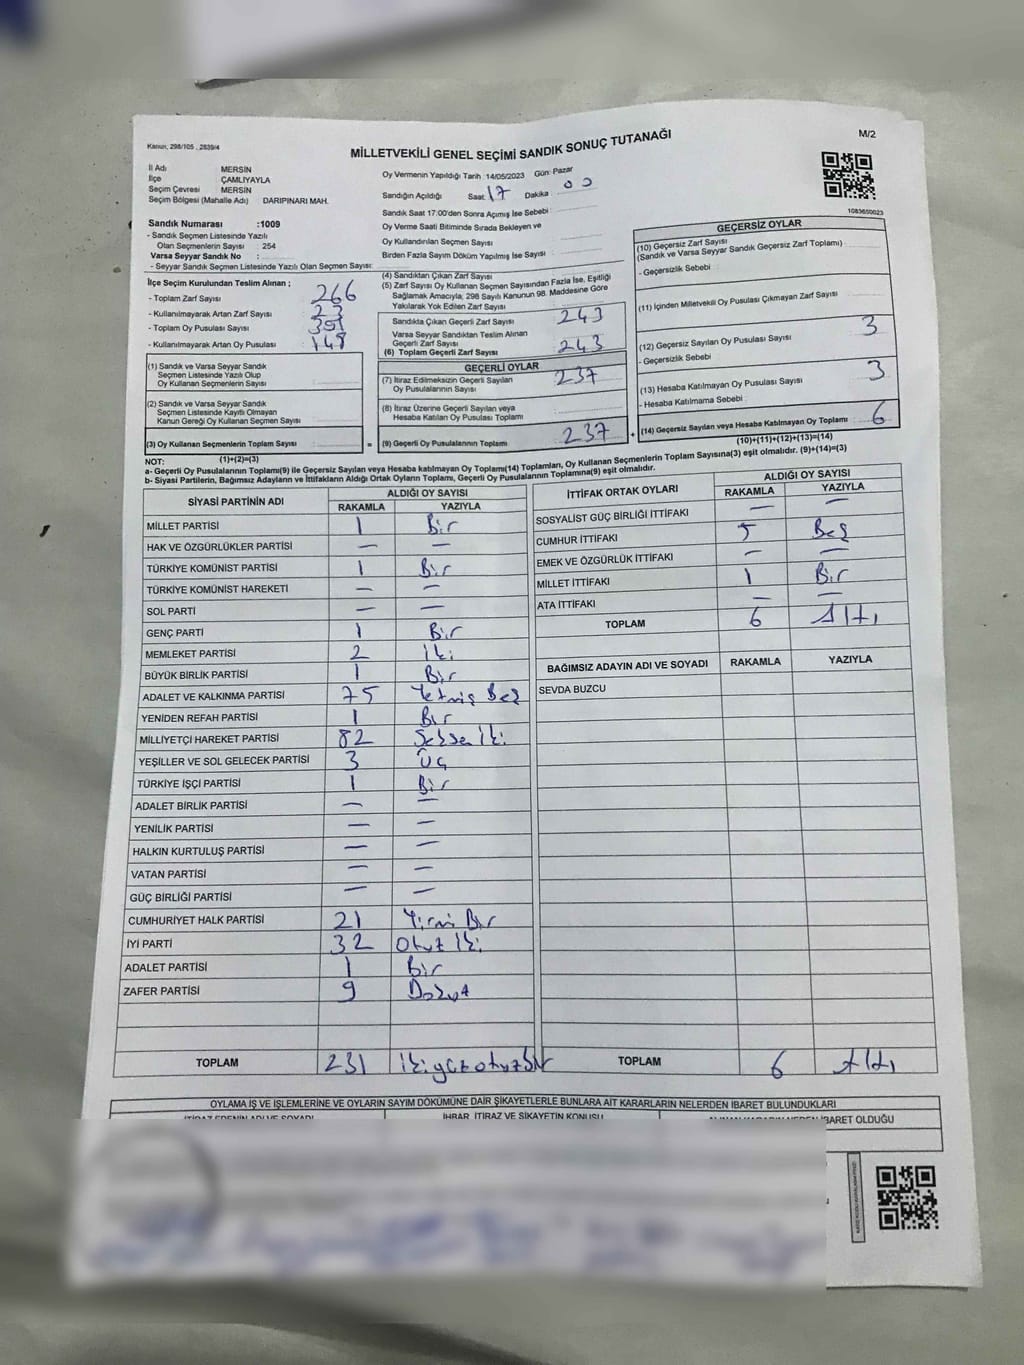 Kanun, 298/105 , 2839/4
MİLLETVEKİLİ GENEL SEÇİMİ SANDIK SONUÇ TUTANAĞI
M/2
İl Adı MERSİN
İlçe ÇAMLIYAYLA
Seçim Çevresi MERSİN
Seçim Bölgesi (Mahalle Adı) DARIPINARI MAH.
Sandık Numarası :1009
- Sandık Seçmen Listesinde Yazılı
Olan Seçmenlerin Sayısı : 254
Varsa Seyyar Sandık No :
- Seyyar Sandık Seçmen Listesinde Yazılı Olan Seçmen Sayısı:
İlçe Seçim Kurulundan Teslim Alınan ;
- Toplam Zarf Sayısı 266
- Kullanılmayarak Artan Zarf Sayısı 23
- Toplam Oy Pusulası Sayısı
- Kullanılmayarak Artan Oy Pusulası 148
(1) Sandık ve Varsa Seyyar Sandık
Seçmen Listesinde Yazılı Olup
Oy Kullanan Seçmenlerin Sayısı
(2) Sandık ve Varsa Seyyar Sandık
Seçmen Listesinde Kayıtlı Olmayan
Kanun Gereği Oy Kullanan Seçmen Sayısı
(3) Oy Kullanan Seçmenlerin Toplam Sayısı
(1)+(2)=(3)
Oy Vermenin Yapıldığı Tarih :14/05/2023 Gün: Pazar
Sandığın Açıldığı Saat: 17 Dakika : 00
Sandık Saat 17:00'den Sonra Açımış İse Sebebi :
Oy Verme Saati Bitiminde Sırada Bekleyen ve
Oy Kullandırılan Seçmen Sayısı
Birden Fazla Sayım Döküm Yapılmış İse Sayısı :
(4) Sandıktan Çıkan Zarf Sayısı
(5) Zarf Sayısı Oy Kullanan Seçmen Sayısından Fazla İse, Eşitliği
Sağlamak Amacıyla, 298 Sayılı Kanunun 98. Maddesine Göre
Yakılarak Yok Edilen Zarf Sayısı
Sandıkta Çıkan Geçerli Zarf Sayısı 243
Varsa Seyyar Sandıktan Teslim Alınan
Geçerli Zarf Sayısı
(6) Toplam Geçerli Zarf Sayısı 243
GEÇERLİ OYLAR
(7) İtiraz Edilmeksizin Geçerli Sayılan
Oy Pusulalarının Sayısı 237
(8) İtiraz Üzerine Geçerli Sayılan veya
Hesaba Katılan Oy Pusulası Toplamı
= (9) Geçerli Oy Pusulalarının Toplamı 237 +
1083650023
GEÇERSİZ OYLAR
(10) Geçersiz Zarf Sayısı
(Sandık ve Varsa Seyyar Sandık Geçersiz Zarf Toplamı)
- Geçersizlik Sebebi :
(11) İçinden Milletvekili Oy Pusulası Çıkmayan Zarf Sayısı
(12) Geçersiz Sayılan Oy Pusulası Sayısı 3
- Geçersizlik Sebebi
(13) Hesaba Katılmayan Oy Pusulası Sayısı 3
- Hesaba Katılmama Sebebi
(14) Geçersiz Sayılan veya Hesaba Katılmayan Oy Toplamı 6
(10)+(11)+(12)+(13)=(14)
NOT:
a- Geçerli Oy Pusulalarının Toplamı(9) ile Geçersiz Sayılan veya Hesaba katılmayan Oy Toplamı(14) Toplamları, Oy Kullanan Seçmenlerin Toplam Sayısına(3) eşit olmalıdır. (9)+(14)=(3)
b- Siyasi Partilerin, Bağımsız Adayların ve İttifakların Aldığı Ortak Oyların Toplamı, Geçerli Oy Pusulalarının Toplamına(9) eşit olmalıdır.
SİYASİ PARTİNİN ADI ALDIĞI OY SAYISI
RAKAMLA YAZIYLA
MİLLET PARTİSİ 1 Bir
HAK VE ÖZGÜRLÜKLER PARTİSİ — —
TÜRKİYE KOMÜNİST PARTİSİ 1 Bir
TÜRKİYE KOMÜNİST HAREKETİ — —
SOL PARTİ — —
GENÇ PARTİ 1 Bir
MEMLEKET PARTİSİ 2 iki
BÜYÜK BİRLİK PARTİSİ 1 Bir
ADALET VE KALKINMA PARTİSİ 75 Yetmiş Beş
YENİDEN REFAH PARTİSİ 1 Bir
MİLLİYETÇİ HAREKET PARTİSİ 82 Seksen iki
YEŞİLLER VE SOL GELECEK PARTİSİ 3 Üç
TÜRKİYE İŞÇİ PARTİSİ 1 Bir
ADALET BİRLİK PARTİSİ — —
YENİLİK PARTİSİ — —
HALKIN KURTULUŞ PARTİSİ — —
VATAN PARTİSİ — —
GÜÇ BİRLİĞİ PARTİSİ — —
CUMHURİYET HALK PARTİSİ 21 Yirmi Bir
İYİ PARTİ 32 Otuz iki
ADALET PARTİSİ 1 Bir
ZAFER PARTİSİ 9 Dokuz
TOPLAM 231 ikiyüzotuzbir
İTTİFAK ORTAK OYLARI ALDIĞI OY SAYISI
RAKAMLA YAZIYLA
SOSYALİST GÜÇ BİRLİĞİ İTTİFAKI — —
CUMHUR İTTİFAKI 5 Beş
EMEK VE ÖZGÜRLÜK İTTİFAKI — —
MİLLET İTTİFAKI 1 Bir
ATA İTTİFAKI — —
TOPLAM 6 Altı
BAĞIMSIZ ADAYIN ADI VE SOYADI RAKAMLA YAZIYLA
SEVDA BUZCU
TOPLAM 6 Altı
OYLAMA İŞ VE İŞLEMLERİNE VE OYLARIN SAYIM DÖKÜMÜNE DAİR ŞİKAYETLERLE BUNLARA AİT KARARLARIN NELERDEN İBARET BULUNDUKLARI
İTİRAZ EDENİN ADI VE SOYADI İHBAR, İTİRAZ VE ŞİKAYETİN KONUSU İBARET OLDUĞU